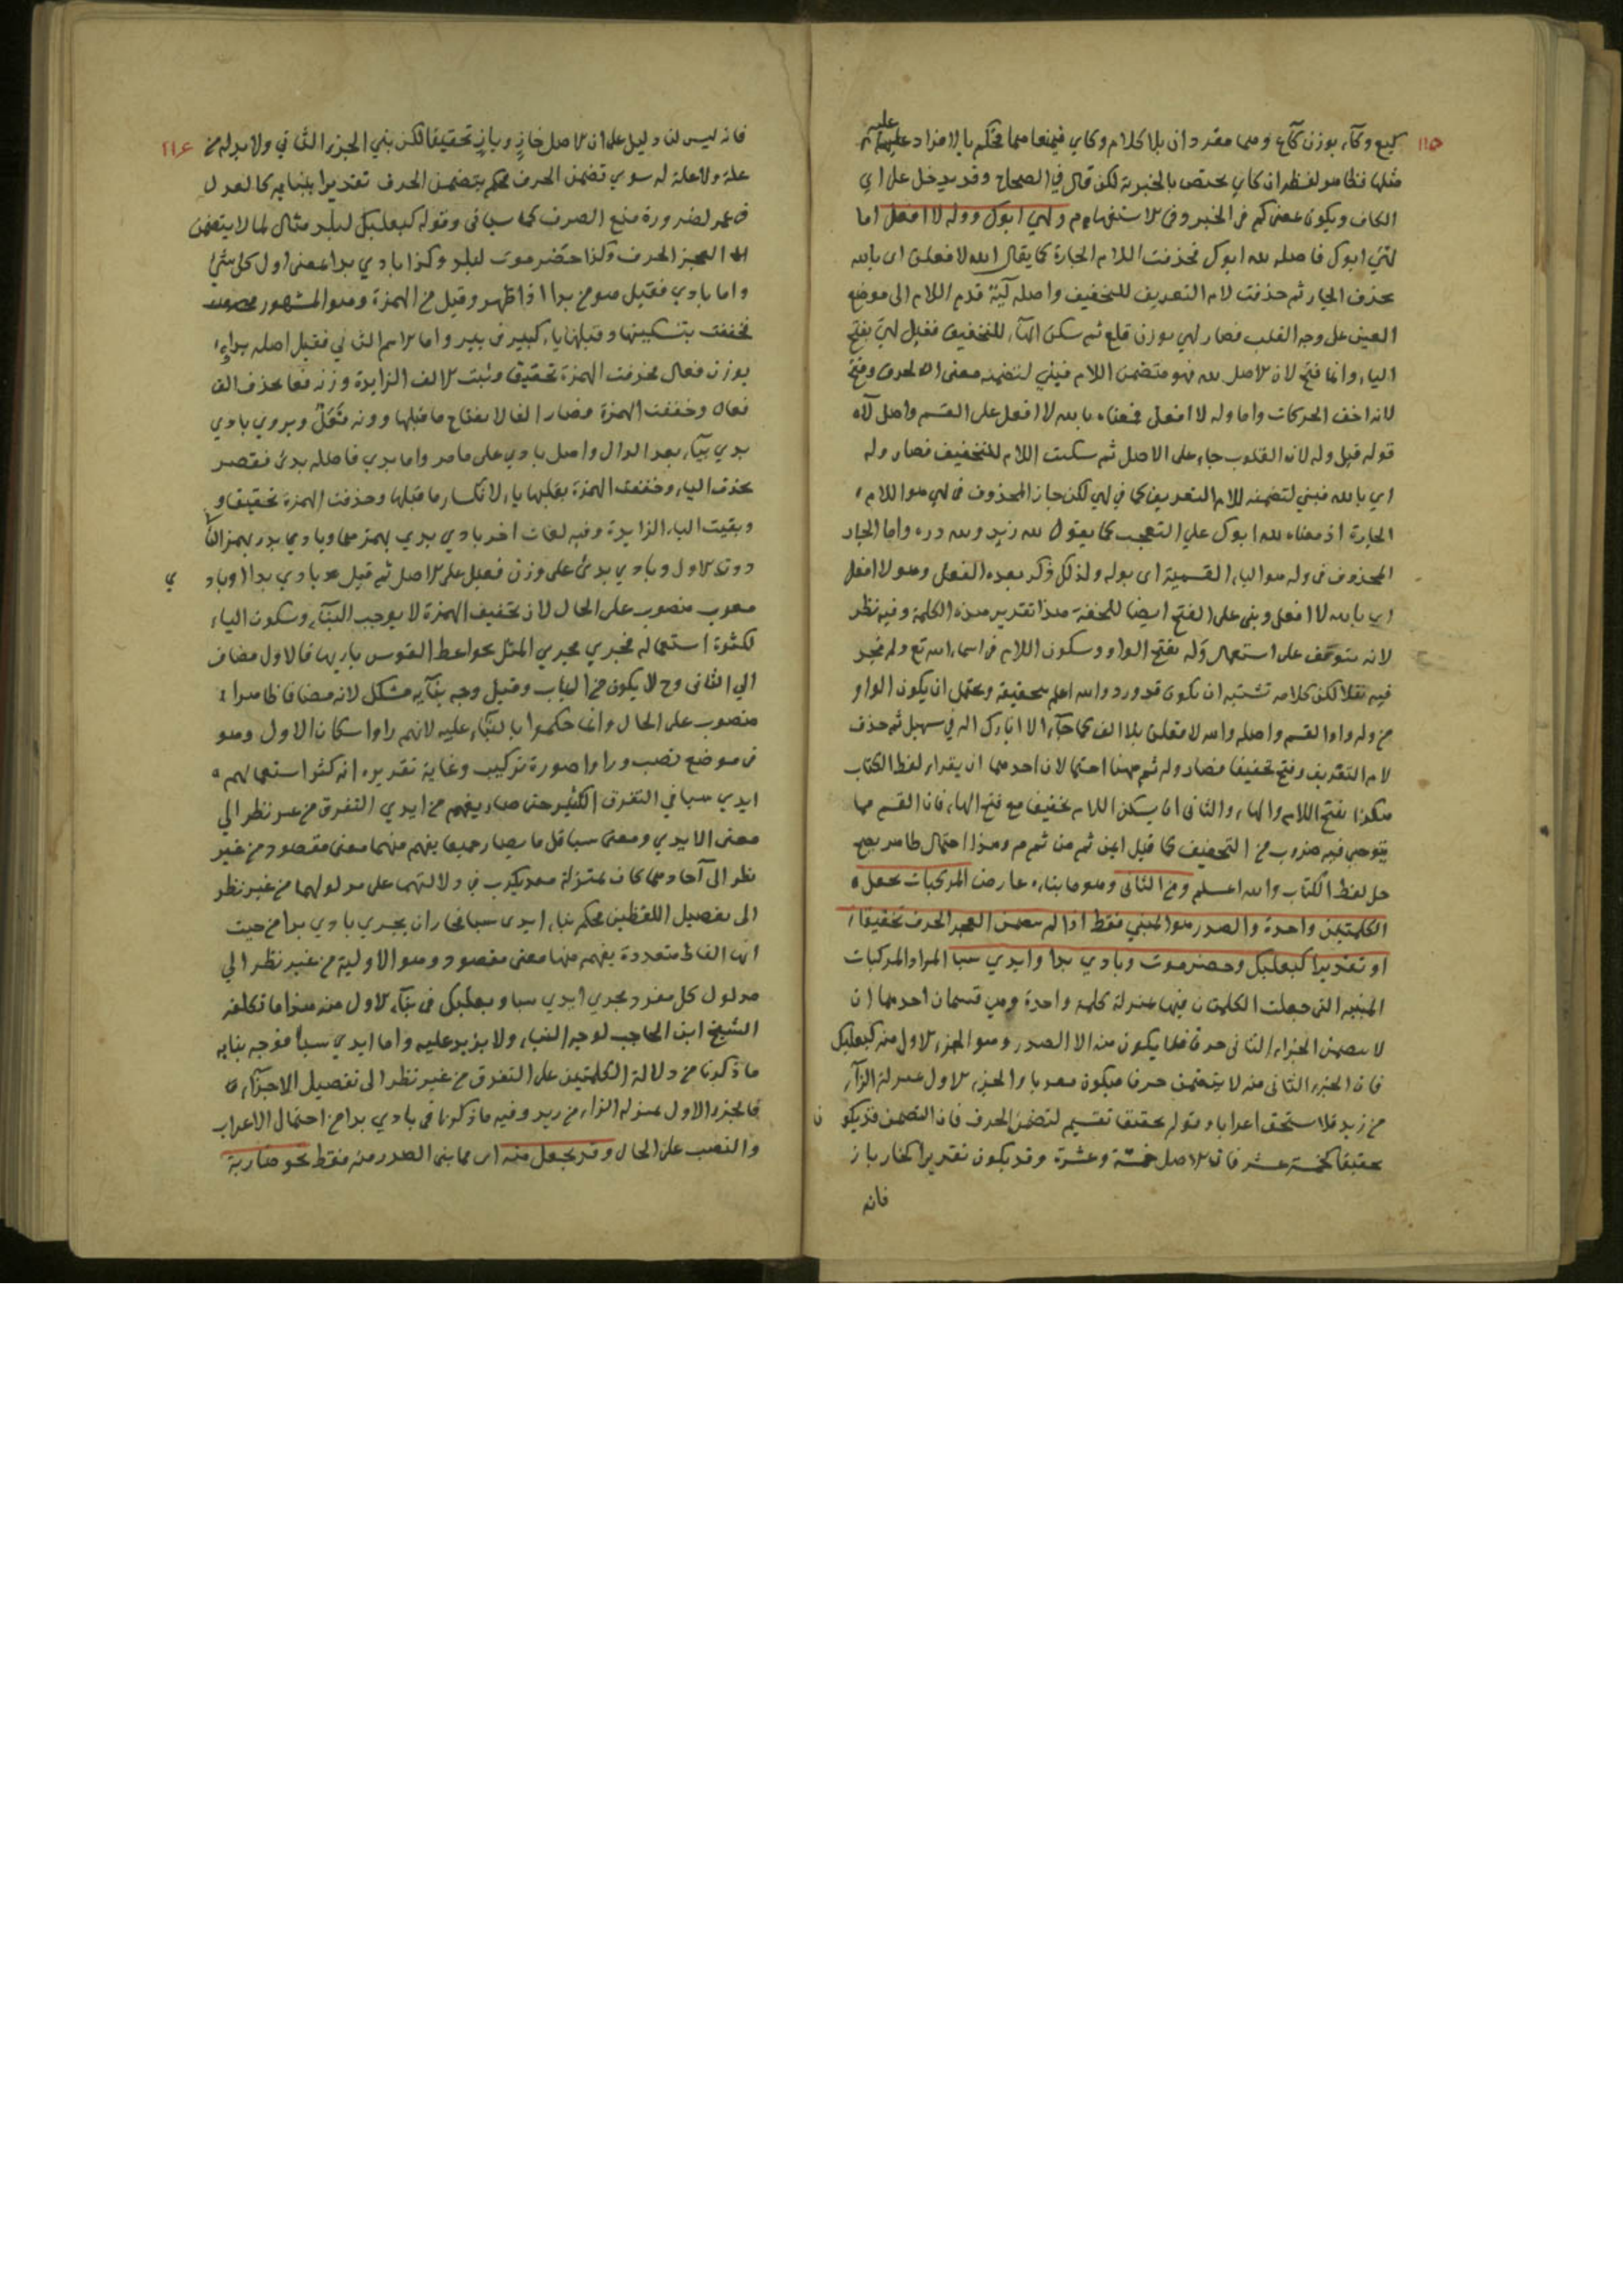 ١١٥
كيع وكآء بوزن كآع وهما مقرد ان بلا كلام وكاي فيمنعا مما فحكم بالافراد عليهما
مثلها فظاهر لفظر ان كاي يختص بالخبرية لكن قال في الصحاح وقد يدخل على اي
الكاف ويكون بمعنى كم في الخبر وفي الاستفهام م ولهي ابوك ووله لا افعل اما
لهي ابوك فاصله لله ابوك فحذفت اللام الجارة كما يقال الله لا فعلن اى بالله
بحذف الجار ثم حذفت لام التعريف للتخفيف واصله ليه قدم اللام الى موضع
العين على وجه القلب فصار لهي بوزن قلع ثم سكن الهآء للتخفيف فقيل لهي بفتح
الياء وانما فتح لان الاصل لله فهو متضمن اللام فبني لتضمنه معنى الحرف وفتح
لانه اخف الحركات واما وله لا افعل فمعناه بالله لا افعل على القسم واصل لاه
قوله قيل وله لان القلوب جاء على الاصل ثم سكنت اللام للتخفيف فصار وله
اي بالله فبني لتضمنه للام التعريف كما في لهي لكن جاز المحذوف في لهي هو اللام
الجارة اذ معناه لله ابوك على التعجب كما يقول لله زيد ولله دره واما الجار
المحذوف في وله هو الباء القسمية اى بوله ولذلك ذكر بعده الفعل وهو لا افعل
اي بالله لا افعل وبنى على الفتح ايضا للخفة هذا تقرير هذه الكلمة وفيه نظر
لانه يتوقف على استعمال وله بفتح الواو وسكون اللام في اسماء الله تع ولم نجد
فيه نقلا لكن كلامه تشتبه ان يكون قد ورد والله اعلم بحقيقة ويحتمل ان يكون الواو
من وله واو القسم واصله والله لا فعلن بلا الف كما جآء الا لا بارك اله في سهيل ثم حذف
لام التعريف وفتح تخفيفا فصار وله ثم ههنا احتمالان احدهما ان يقراء لفظ الكتاب
هكذا بفتح اللام والهاء والثاني ان يسكن اللام تخفيفا مع فتح الهاء فان القسم مما
يتوخى فيه ضروب من التخفيف كما قيل ايمن ثم من ثم م وهذا احتمال ظاهر يصح
حل لفظ الكتاب والله اعلم ومن الثاني وهو ما بناءه عارض المركبات بجعل
الكلمتين واحدة والصدر هو المبني فقط اذا لم يتضمن العجز الحرف تحقيقا
او تقديرا كبعلبك وحضرموت وبادي بدا وايدي سبا المراد المركبات
المبنية التي جعلت الكلمتان فيها بمنزلة كلمة واحدة وهي قسمان احدهما ان
لا يتضمن الجزاء الثاني حرفا فلا يكون منه الا الصدر وهو الجزء الاول منه كبعلبك
فان الجزء الثاني منه لا يتضمن حرفا فيكون معربا والجزء الاول بمنزلة الزآء
من زيد فلا يستحق اعرابا وقوله تحقيقا تقسيم لتضمن الحرف فان التضمن قد يكون
تحقيقا كخمسة عشر فان الاصل خمسة وعشرة وقد يكون تقديرا كخازباز
فانه
١١٦
فانه ليس لنا دليل على ان الاصل خاز وباز تحقيقا لكن بني الجزء الثاني ولا بد له من
علة ولا علة له سوي تضمن الحرف فحكم بتضمن الحرف تقديرا لبنائه كالعدل
في عمر لضرورة منع الصرف كما سياتي وقوله كبعلبك لبلد مثال لما لا يتضمن
العجز الحرف وكذا حضرموت لبلد وكذا بادي بدا بمعنى اول كل شئ
واما بادي فقيل هو من بدا اذا ظهر وقيل من الهمزة وهو المشهور
فخففت بتسكينها وقبلها ياء كبير في بير واما الاسم الثاني فقيل اصله بداء
بوزن فعال فحذفت الهمزة تحقيقا وثبت الالف الزايدة وزنه فعا بحذف الف
فعال وخففت الهمزة فصار الفا لانفتاح ما قبلها ووزنه فعل ويروي بادي
بدي بيآء بعد الدال واصل بادي على ما مر واما بدي فاصله بدئ فقصر
بحذف الياء وخففت الهمزة بقلبها ياء لانكسار ما قبلها وحذفت الهمزة تخفيفا
وبقيت الياء الزايدة وفيه لغات اخر بادي بدي بهمزهما وبادي بدء بهمز الثاني
دون الاول وبادي بدئ على وزن فعيل على الاصل ثم قيل بادي بدا وبادي
معرب منصوب على الحال لان تخفيف الهمزة لا يوجب البنآء وسكون الياء
لكثرة استعماله فجري مجرى المثل نحو اعط القوس باريها فالاول مضاف
الى الثاني وح لا يكون من الباب وقيل وجه بنآيه مشكل لانه مضاف ظاهرا
منصوب على الحال وانما حكموا بالبنآء عليه لانهم راوا اسكان الاول وهو
في موضع نصب وراوا صورة تركيب وغاية تقديره انه كثر استعمالهم
ايدي سبا في التفرق الكثير حتى صار يفهم من ايدي التفرق من غير نظر الي
معنى الايدي ومعنى سبا قبل ما يصار جميعا يفهم منهما معنى مقصود من غير
نظر الى آحادهما كان بمنزلة معديكرب في دلالتهما على مدلولهما من غير نظر
الى تفصيل اللفظين فحكم بناء ايدي سبا فجاز ان يجري بادي بدا من حيث
انها الفاظ متعددة يفهم منها معنى مقصود وهو الاولية من غير نظر الي
مدلول كل مفرد مجري ايدي سبا وبعلبك في بنآء الاول منه هذا ما تكلفه
الشيخ ابن الحاجب لوجه البناء ولا يزيد عليه واما ايدي سبا فوجه بنايه
ما ذكرنا من دلالة الكلمتين على التفرق من غير نظر الى تفصيل الاجزآء
فالجزء الاول بمنزلة الزاء من زيد وفيه ما ذكرنا في بادي بدا من احتمال الاعراب
والنصب على الحال وقد يجعل منه اى مما بني الصدر منه فقط نحو ضاربة